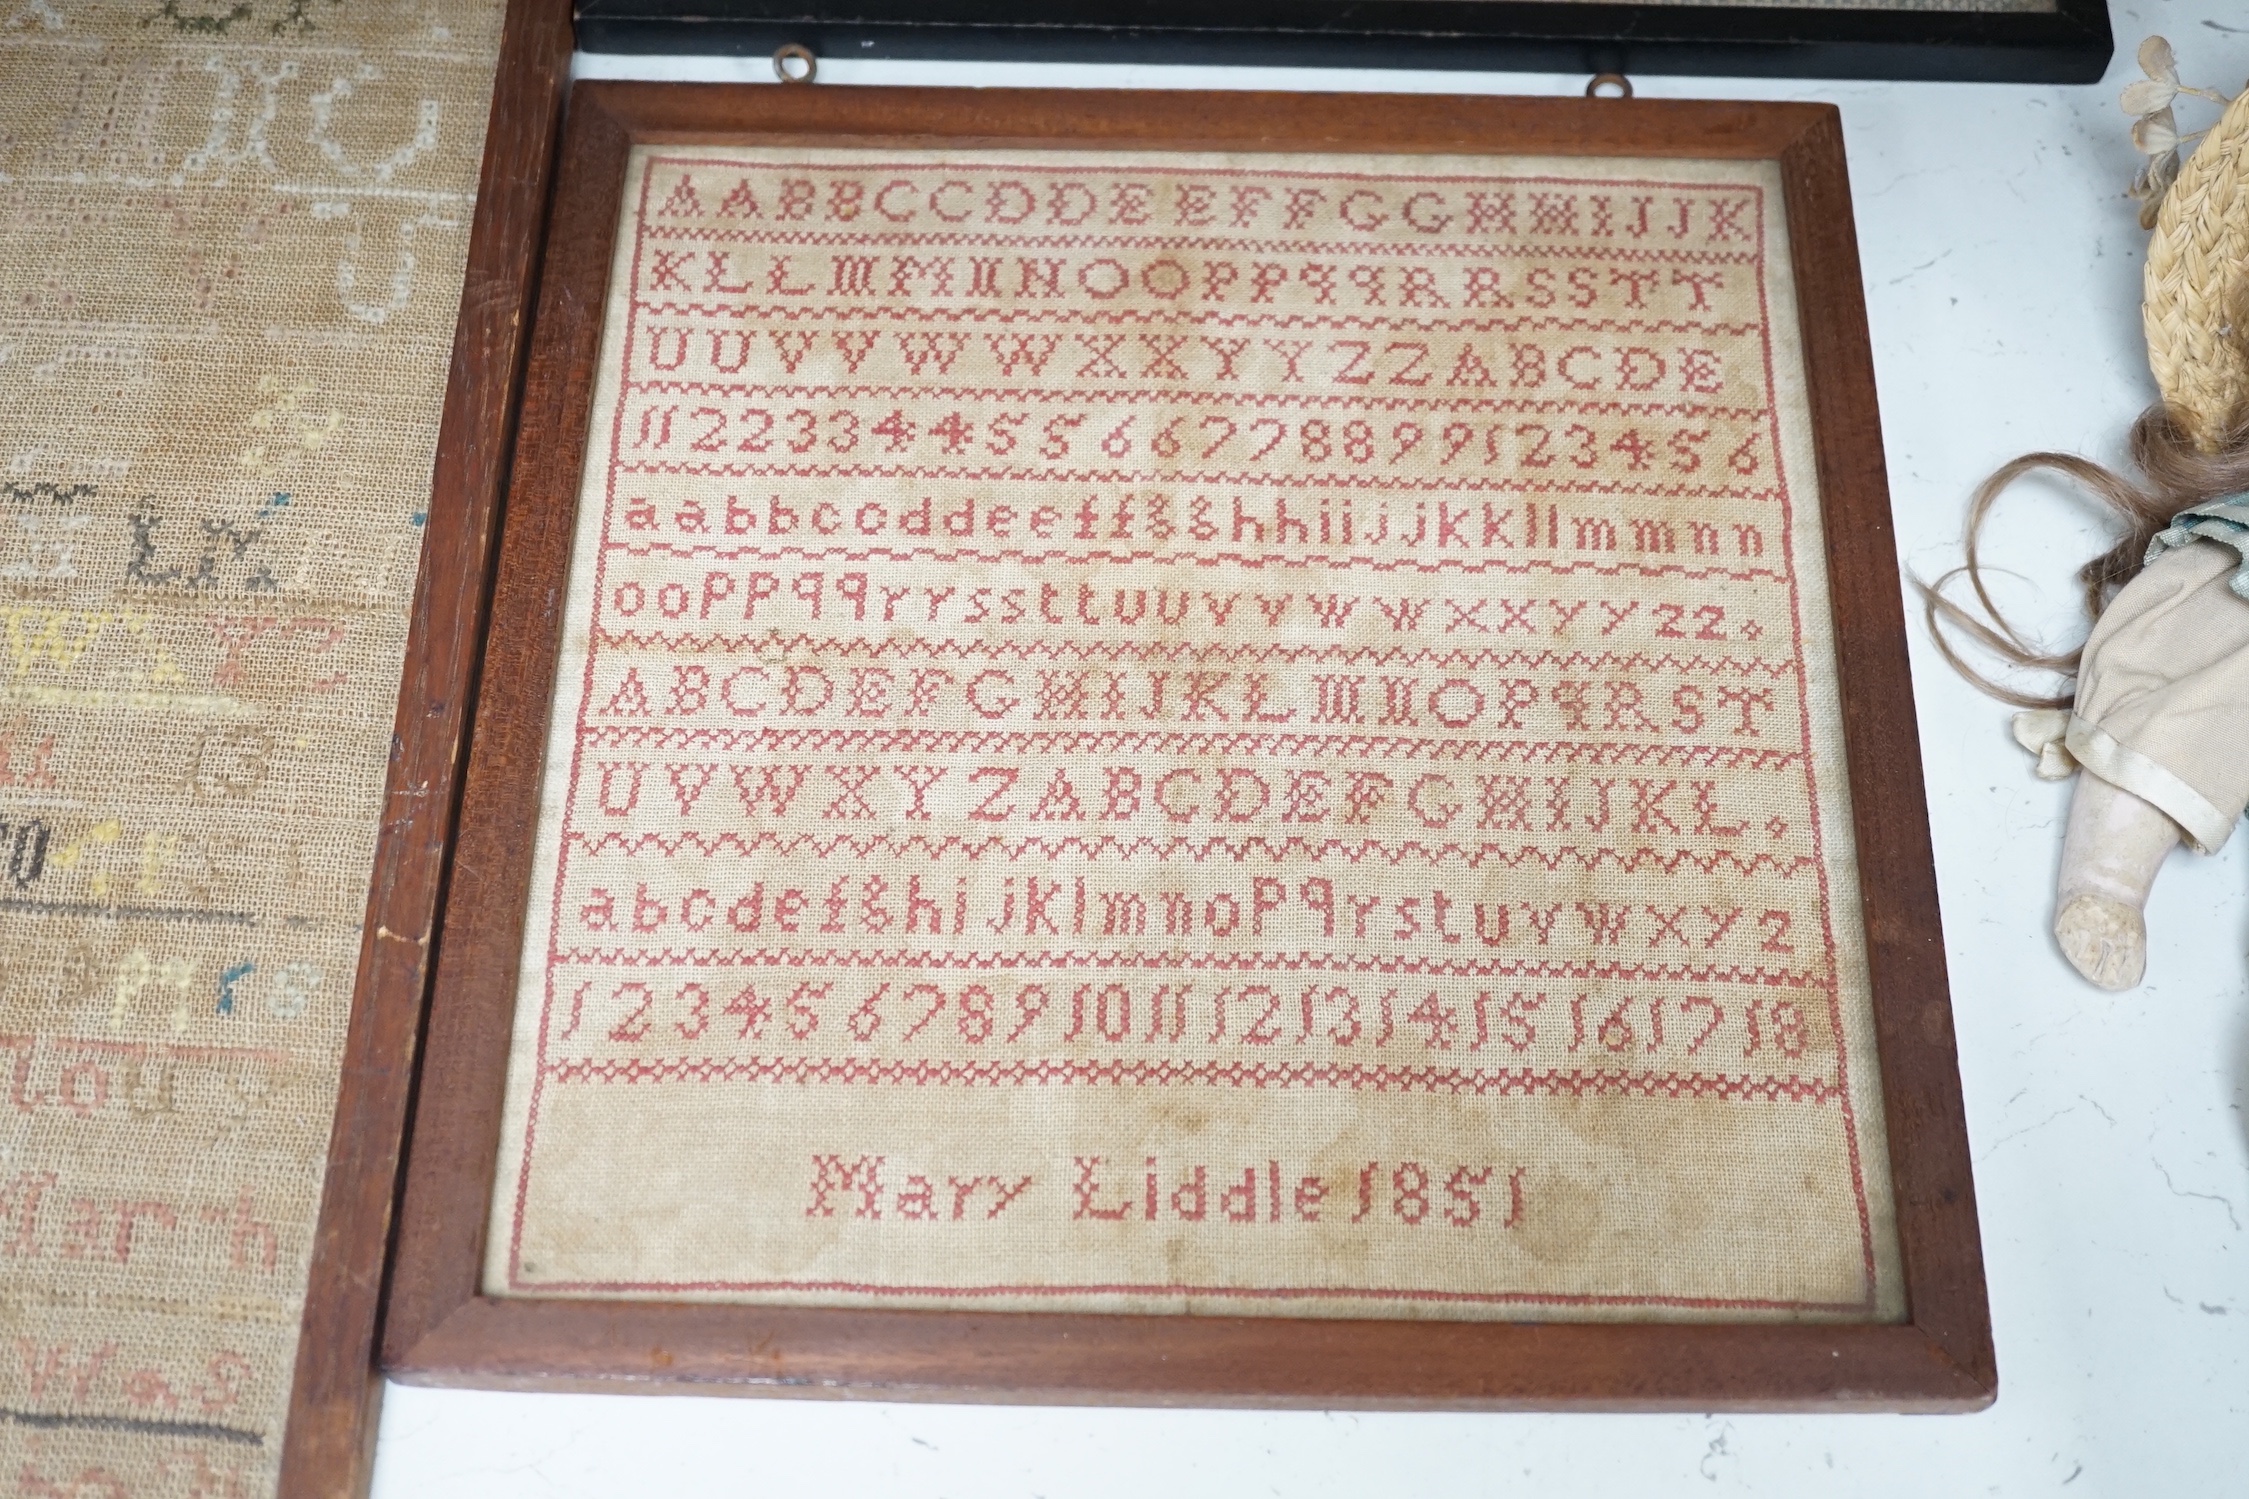 AABBCCDDEEFFGGHHIJJK
KLLMMNNOOPPqqRRSSTT
UUVVWWXXYYZZABCDE
112233445566778899123456
aabbccddeeffgghhiijjkkllmmnn
ooppqqrrssttuuvvwwxxyyzz.
ABCDEFGHIJKLMNOPqRST
UVWXYZABCDEFGHIJKL.
abcdefghijklmnopqrstuvwxyz
1 2 3 4 5 6 7 8 9 10 11 12 13 14 15 16 17 18
Mary Liddle 1851
Was